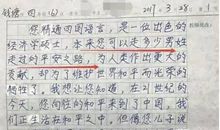 钱塘 四(6) 2017.3.28 第1
您精通四国语言，是一位出色的
经济学硕士，本来您可以走多少男性
走过的平安之路，为人类作出更大的
贡献，却为了维护世界和平而光荣的
牺牲了。我想让您知道，在21世纪的
今天，您向往的和平来到了中国，我
们正生活在和平之中，但偏您儿子说